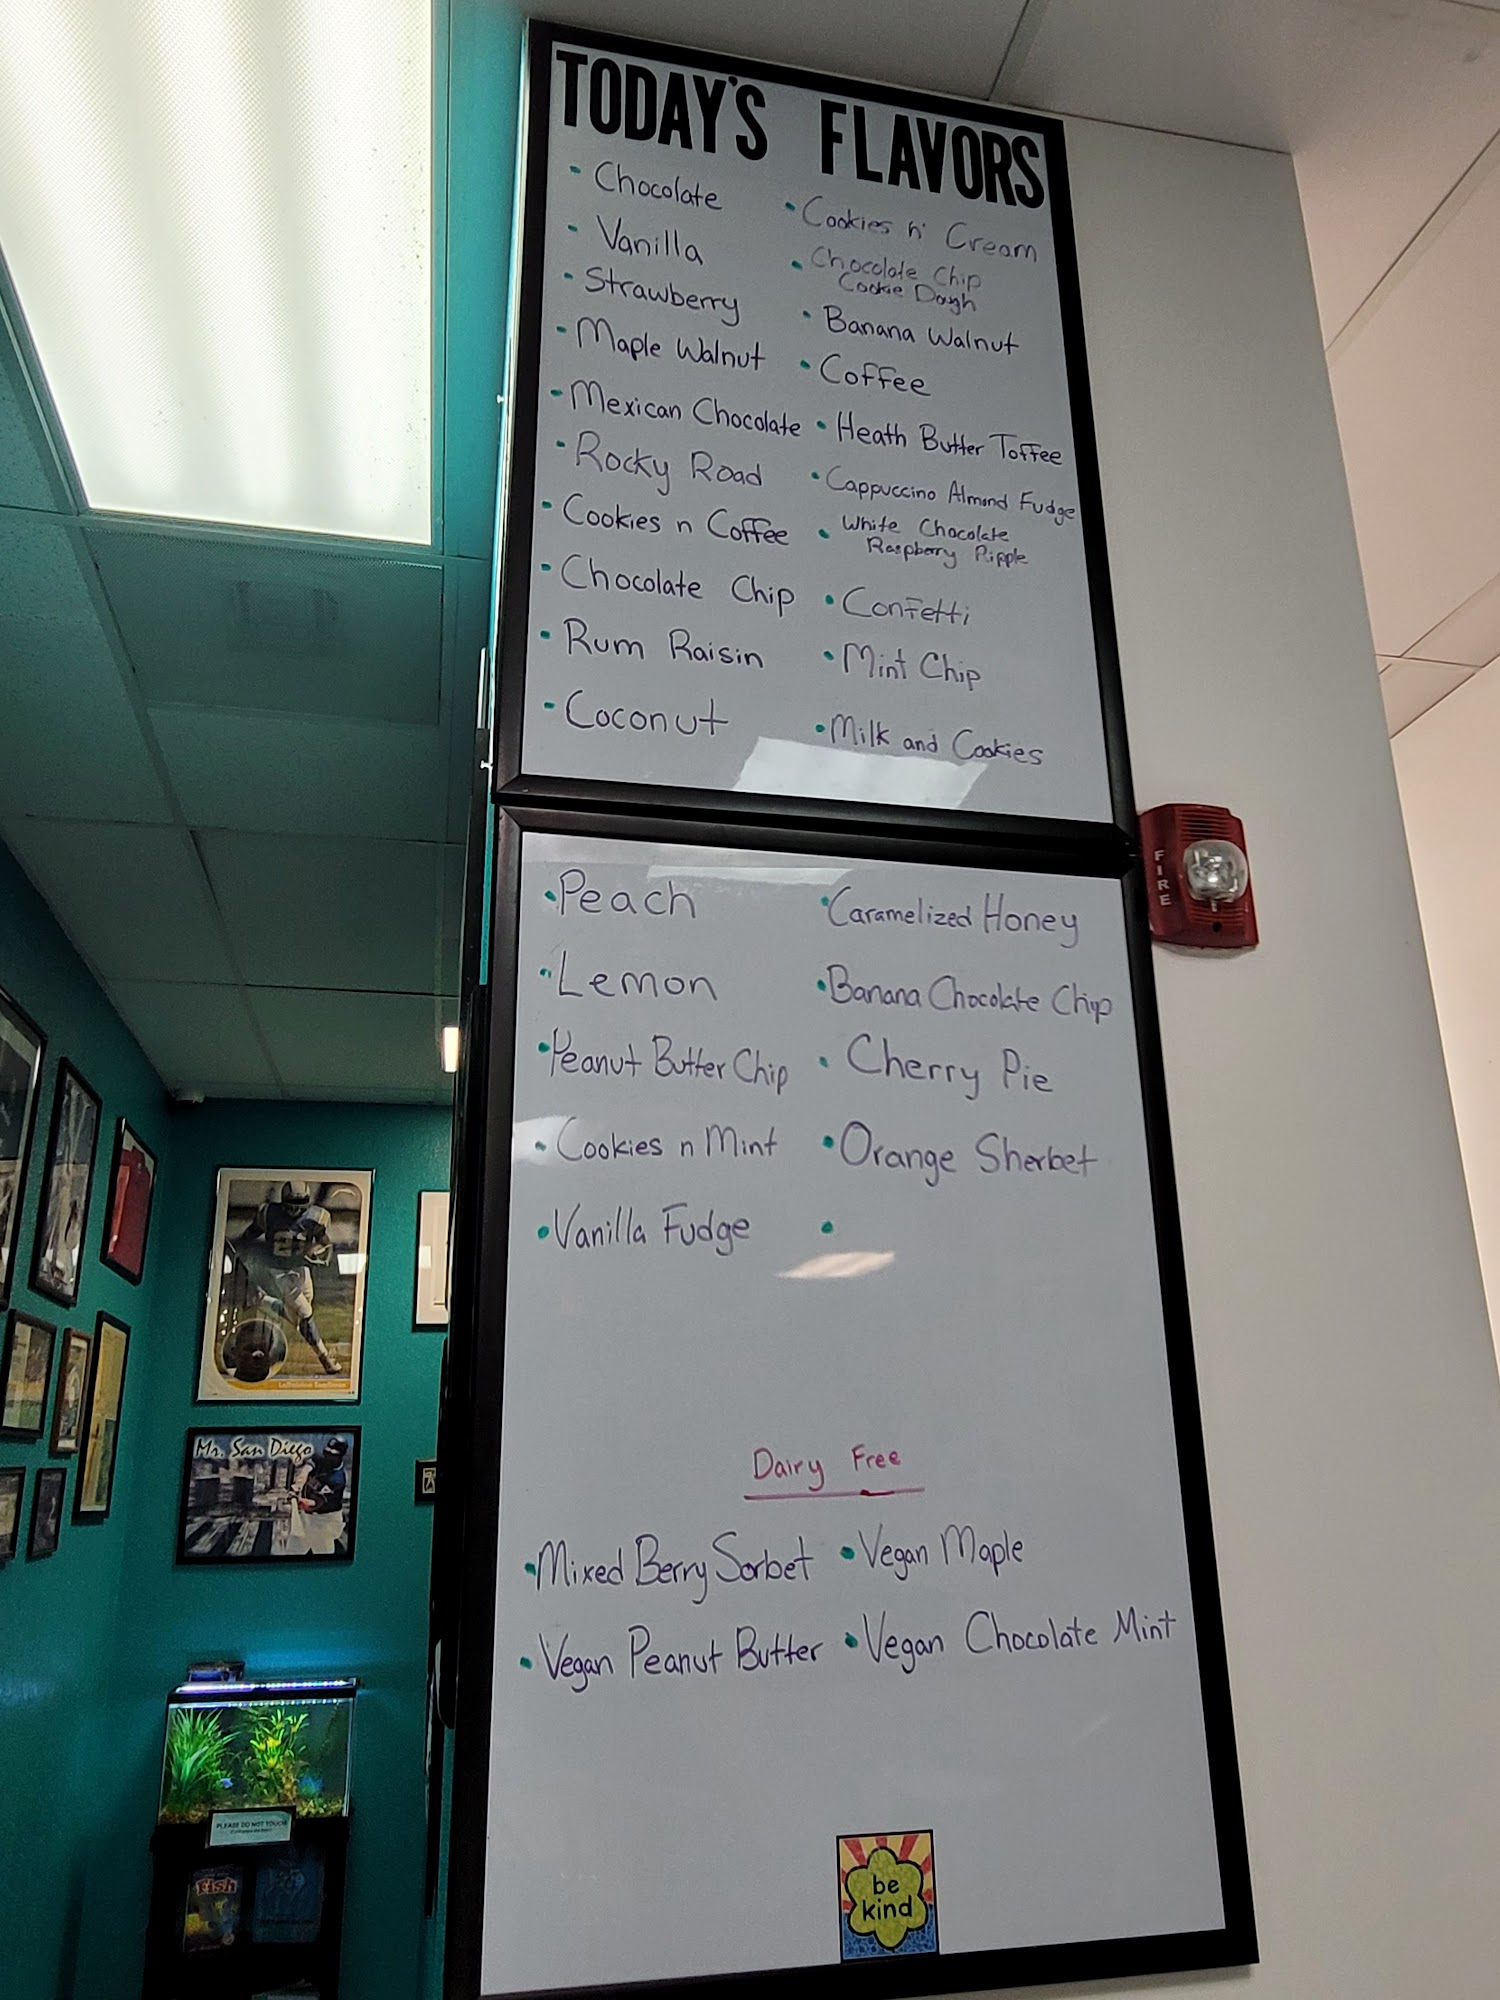 TODAY'S FLAVORS
Chocolate
Vanilla
Strawberry
Maple Walnut
Mexican Chocolate
Rocky Road
Cookies n Coffee
Chocolate Chip
Rum Raisin
Coconut
Cookies n' Cream
Chocolate Chip
Cookie Dough
Banana Walnut
Coffee
Heath Butter Toffee
Cappuccino Almond Fudge
White Chocolate
Raspberry Ripple
Confetti
Mint Chip
Milk and Cookies
Peach
Lemon
Peanut Butter Chip
Cookies n Mint
Vanilla Fudge
Caramelized Honey
Banana Chocolate Chip
Cherry Pie
Orange Sherbet
Dairy Free
Mixed Berry Sorbet
Vegan Peanut Butter
Vegan Maple
Vegan Chocolate Mint
be
kind
FIRE
Mr. San Diego
PLEASE DO NOT TOUCH
Fish